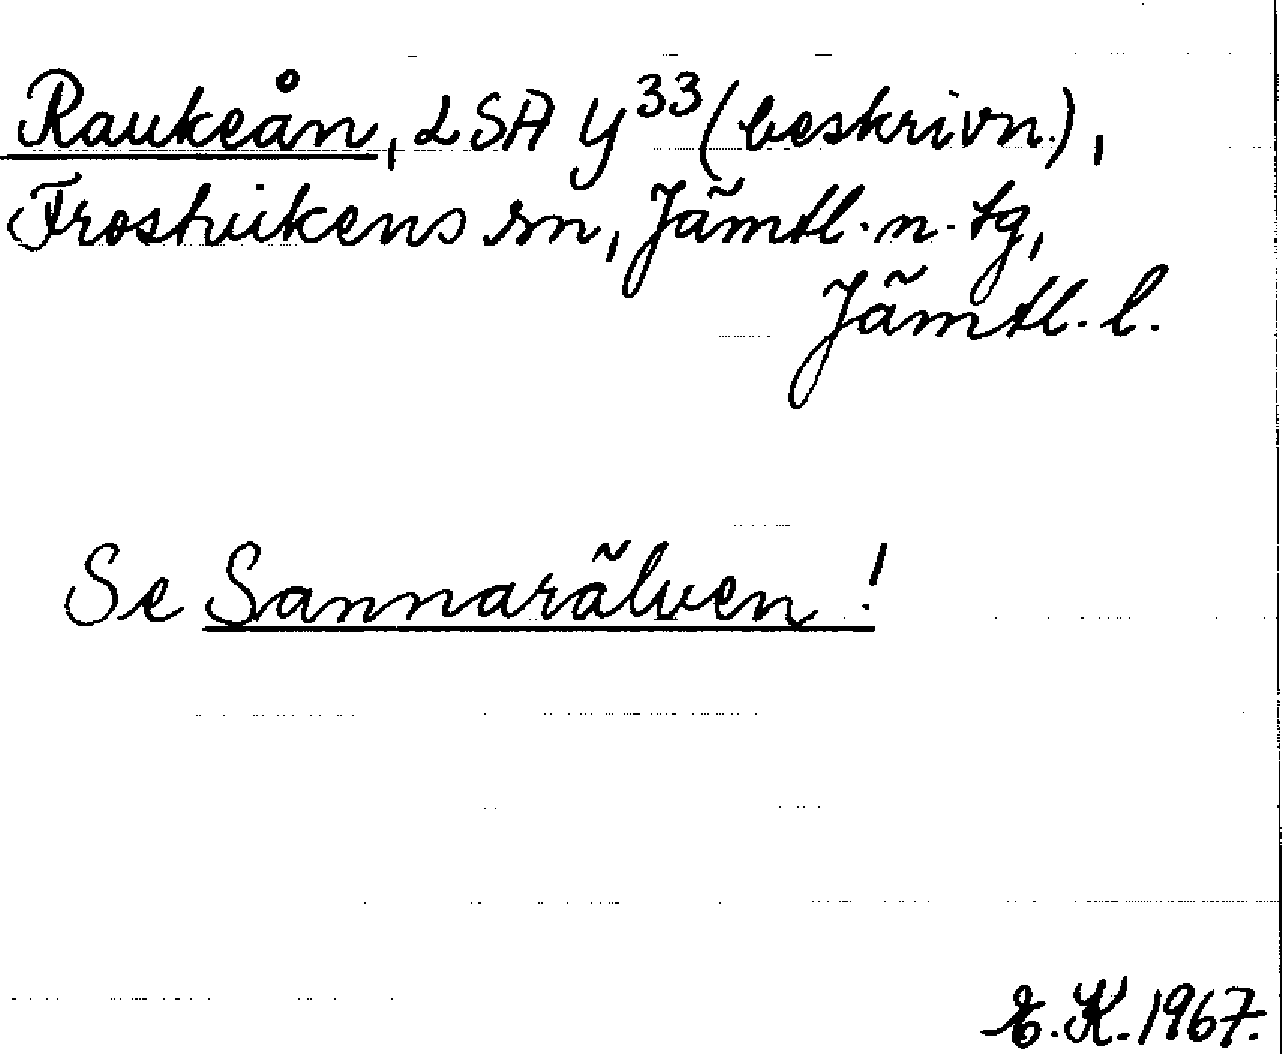 Raukeån, LSA Y³³ (beskrivn.),
Frostvikens sn, Jämtl. n. tg,
Jämtl. l.
Se Sannarälven!
E.K. 1967.